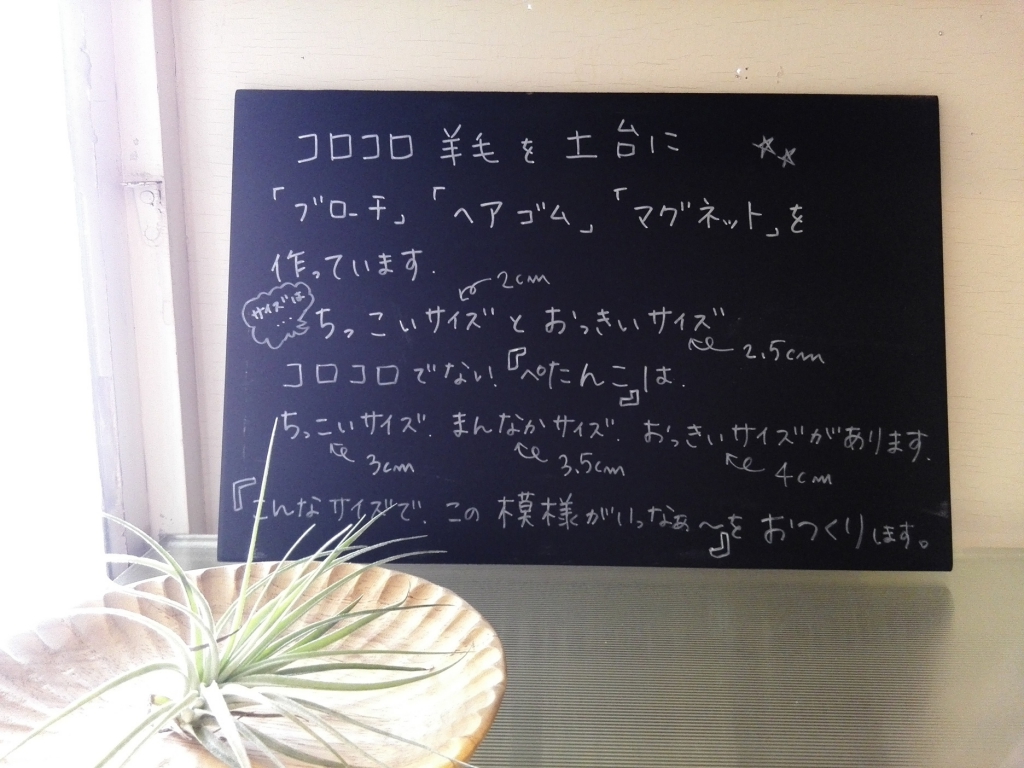 コロコロ 羊毛を 土台に ☆☆
「ブローチ」「ヘアゴム」「マグネット」を
作っています.
2cm
サイズは…
ちっこいサイズ と おっきいサイズ
2.5cm
コロコロでない!『ぺたんこ』は.
ちっこいサイズ. まんなかサイズ. おっきいサイズがあります.
3cm 3.5cm 4cm
『こんなサイズで. この 模様がいっなぁ〜』を おつくりします。